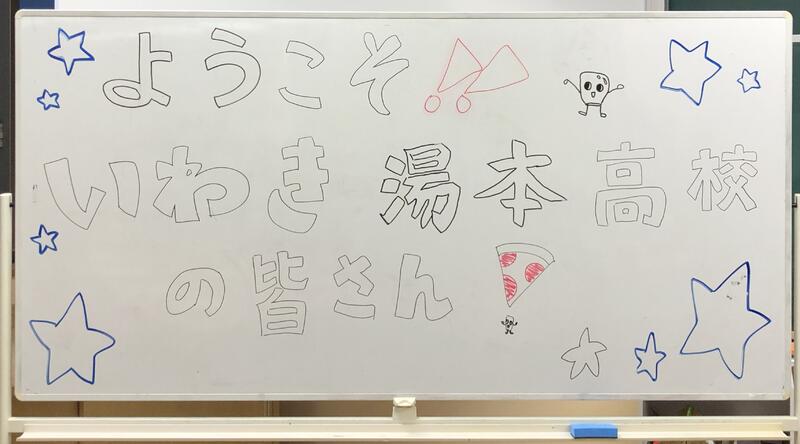 ようこそ!!
いわき湯本高校
の皆さん